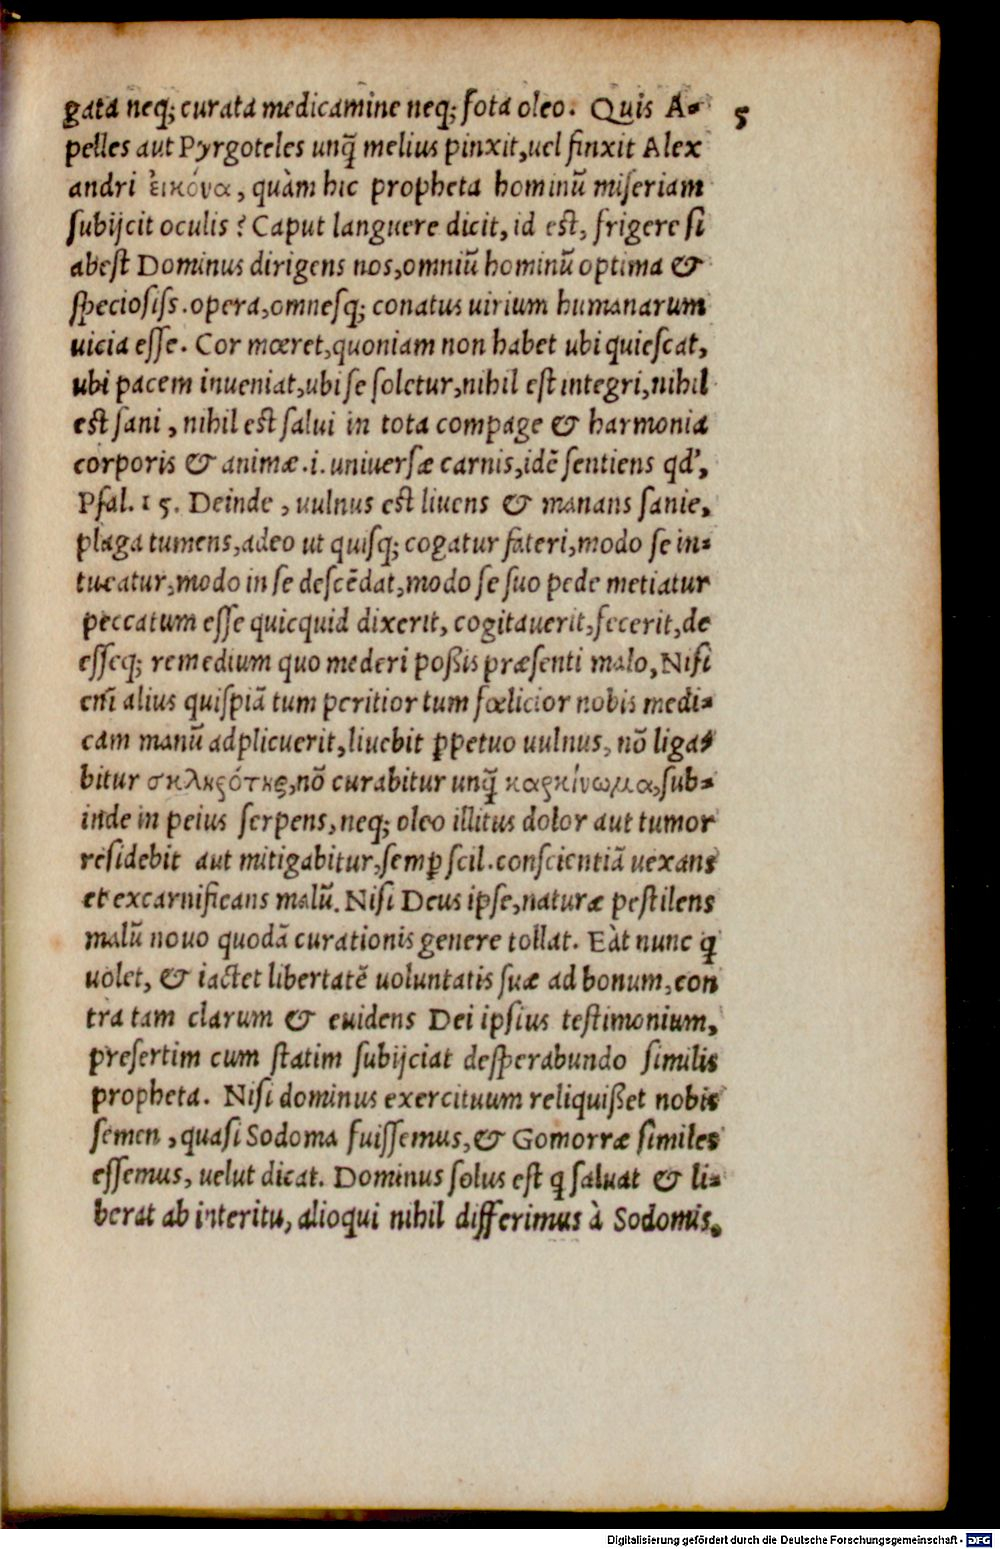 gata neq; curata medicamine neq; fota oleo. Quis A-
5
pelles aut Pyrgoteles unq̃ melius pinxit, uel finxit Alex
andri ἐικόνα, quàm hic propheta hominũ miseriam
subijcit oculis? Caput languere dicit, id est, frigere si
abest Dominus dirigens nos, omniũ hominũ optima &
speciosiss. opera, omnesq; conatus uirium humanarum
uicia esse. Cor mœret, quoniam non habet ubi quiescat,
ubi pacem inueniat, ubi se soletur, nihil est integri, nihil
est sani, nihil est salui in tota compage & harmonia
corporis & animæ .i. uniuersæ carnis, idẽ sentiens qd',
Psal. 15. Deinde, uulnus est liuens & manans sanie,
plaga tumens, adeo ut quisq; cogatur fateri, modo se in-
tueatur, modo in se descẽdat, modo se suo pede metiatur
peccatum esse quicquid dixerit, cogitauerit, fecerit, de
esseq; remedium quo mederi poßis præsenti malo, Nisi
em̃ alius quispiã tum peritior tum fœlicior nobis medi-
cam manũ adplicuerit, liuebit ꝑpetuo uulnus, nõ liga-
bitur σκληρότης, nõ curabitur unq̃ καρκίνωμα, sub-
inde in peius serpens, neq; oleo illitus dolor aut tumor
residebit aut mitigabitur, semꝑ scil. conscientiã uexans
et excarnificans malũ. Nisi Deus ipse, naturæ pestilens
malũ nouo quodã curationis genere tollat. Eàt nunc q̃
uolet, & iactet libertatẽ uoluntatis suæ ad bonum, con
tra tam clarum & euidens Dei ipsius testimonium,
presertim cum statim subijciat desperabundo similis
propheta. Nisi dominus exercituum reliquißet nobis
semen, quasi Sodoma fuissemus, & Gomorræ similes
essemus, uelut dicat. Dominus solus est q̃ saluat & li-
berat ab interitu, alioqui nihil differimus à Sodomis.
Digitalisierung gefördert durch die Deutsche Forschungsgemeinschaft - DFG